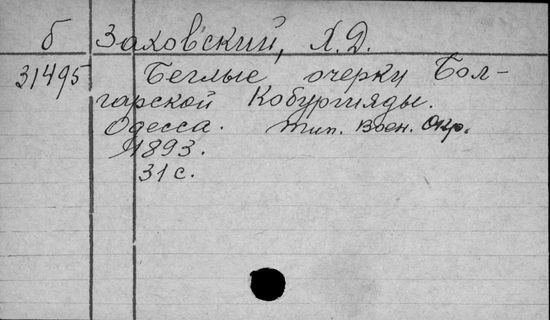 б Заховский, Х.Д.
31495 Беглые очерки Бол-
гарской Кобургияды.
Одесса. Тип. Воен. Окр.
1893.
31 с.